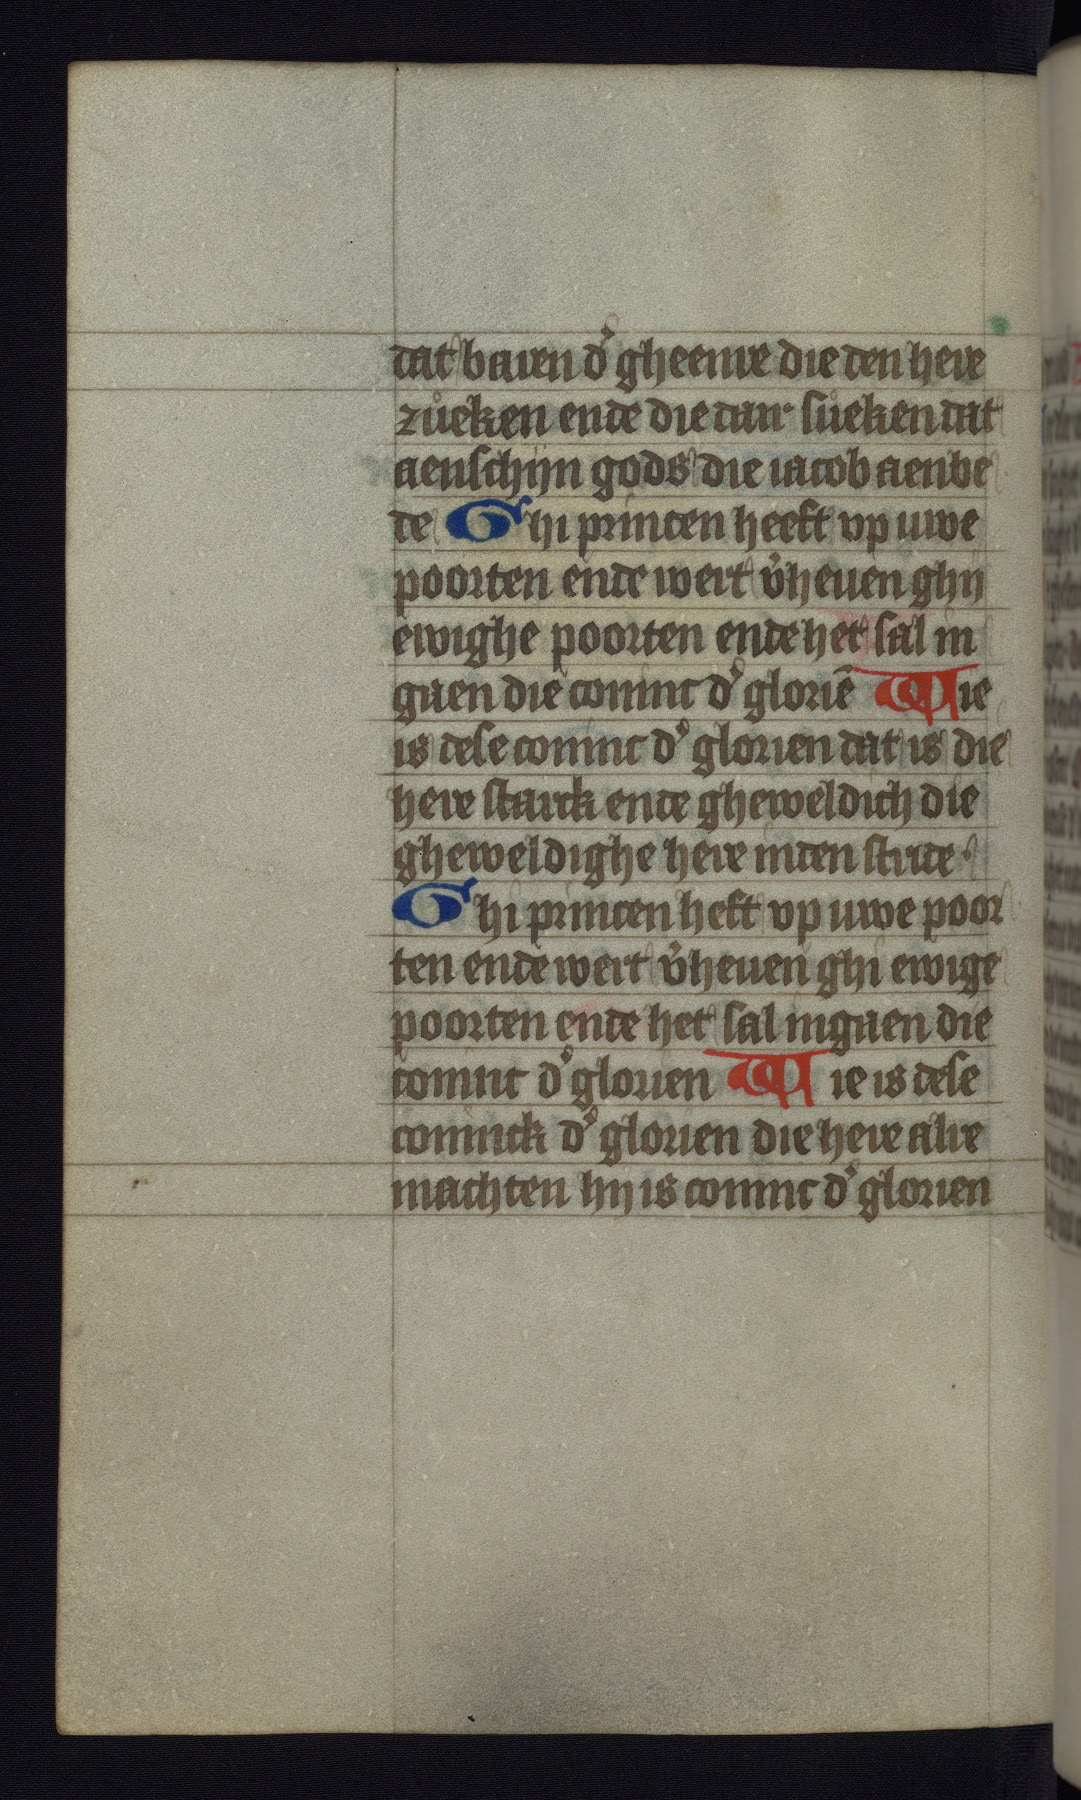 dat baren d' gheenre die den here
zůeken ende die daer sůeken dat
aenschijn gods die iacob aenbe
de Ghi princen heeft vp uwe
poorten ende wert v'heuen ghij
ewighe poorten ende het sal in
gaen die coninc d' gloriē Wie
is dese coninc d' glorien dat is die
here starck ende gheweldich die
gheweldighe here inden stride·
Ghi princen heft vp uwe poor
ten ende wert v'heuen ghi ewige
poorten ende het sal ingaen die
coninc d' glorien Wie is dese
coninck d' glorien die here alre
machten hij is coninc d' glorien